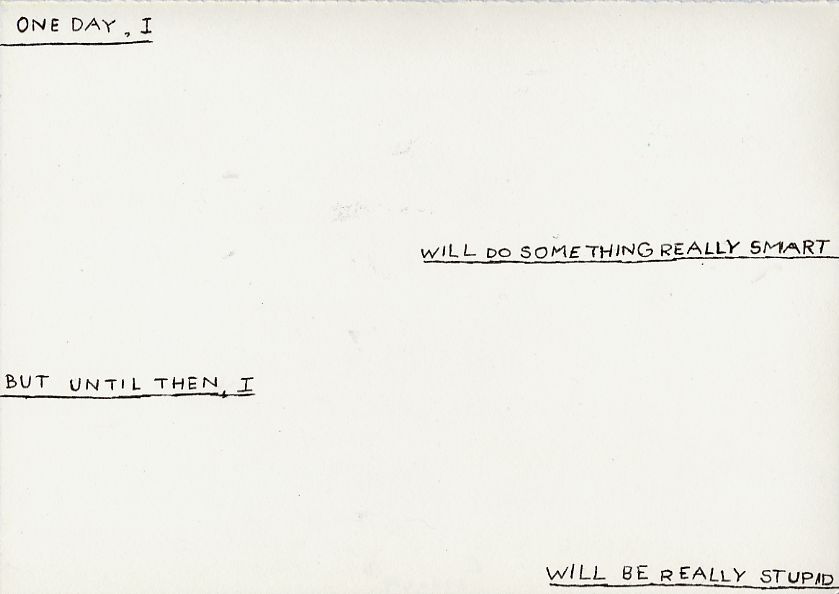 ONE DAY, I
WILL DO SOMETHING REALLY SMART
BUT UNTIL THEN, I
WILL BE REALLY STUPID